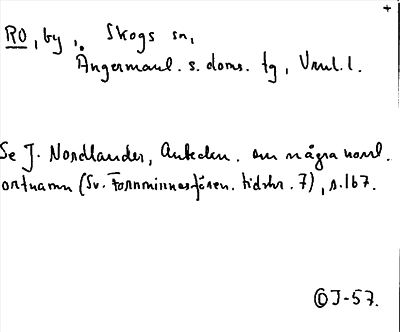 +
RO, by, Skogs sn,
Ångermanl. s. doms. tg, Vnl. l.
Se J. Nordlander, Anteckn. om några norrl.
ortnamn (Sv. Fornminnesfören. tidskr. 7), s. 167.
ⒹJ-57.